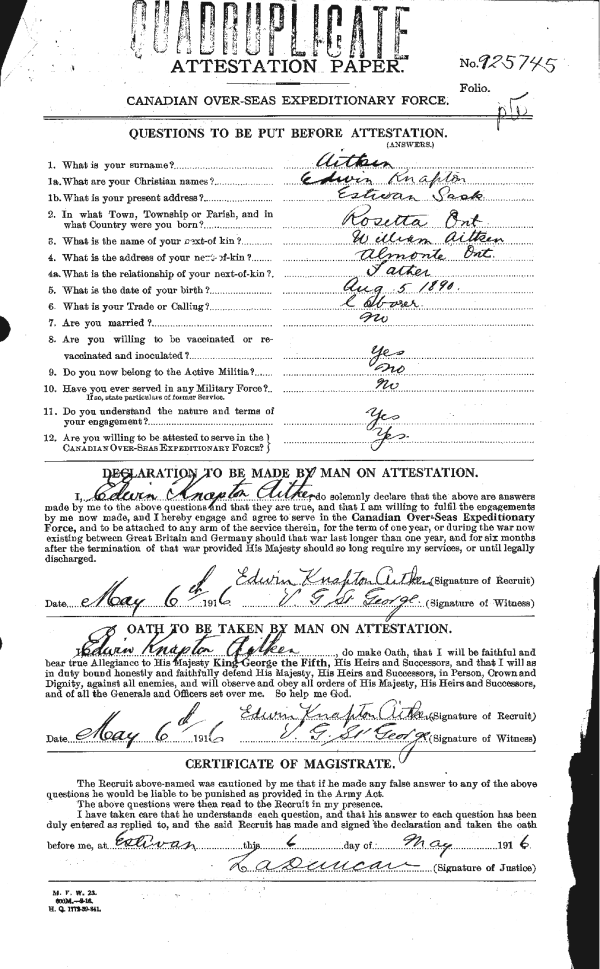 QUADRUPLICATE
ATTESTATION PAPER.
No. 925745
Folio.
CANADIAN OVER-SEAS EXPEDITIONARY FORCE.
QUESTIONS TO BE PUT BEFORE ATTESTATION.
(ANSWERS.)
1. What is your surname? Aitken
1a. What are your Christian names? Edwin Knapton
1b. What is your present address? Estevan Sask
2. In what Town, Township or Parish, and in
what Country were you born? Rosetta Ont
3. What is the name of your next-of kin? William Aitken
4. What is the address of your next-of-kin? Almonte Ont.
4a. What is the relationship of your next-of-kin? Father
5. What is the date of your birth? Aug 5 1890.
6. What is your Trade or Calling? Laborer
7. Are you married? No
8. Are you willing to be vaccinated or re-
vaccinated and inoculated? Yes
9. Do you now belong to the Active Militia? No
10. Have you ever served in any Military Force? No
If so, state particulars of former Service.
11. Do you understand the nature and terms of
your engagement? Yes
12. Are you willing to be attested to serve in the
CANADIAN OVER-SEAS EXPEDITIONARY FORCE? Yes.
DECLARATION TO BE MADE BY MAN ON ATTESTATION.
I, Edwin Knapton Aitken do solemnly declare that the above are answers
made by me to the above questions and that they are true, and that I am willing to fulfil the engagements
by me now made, and I hereby engage and agree to serve in the Canadian Over-Seas Expeditionary
Force, and to be attached to any arm of the service therein, for the term of one year, or during the war now
existing between Great Britain and Germany should that war last longer than one year, and for six months
after the termination of that war provided His Majesty should so long require my services, or until legally
discharged.
Edwin Knapton Aitken (Signature of Recruit)
Date May 6th 1916 V. G. St George. (Signature of Witness)
OATH TO BE TAKEN BY MAN ON ATTESTATION.
I, Edwin Knapton Aitken, do make Oath, that I will be faithful and
bear true Allegiance to His Majesty King George the Fifth, His Heirs and Successors, and that I will as
in duty bound honestly and faithfully defend His Majesty, His Heirs and Successors, in Person, Crown and
Dignity, against all enemies, and will observe and obey all orders of His Majesty, His Heirs and Successors,
and of all the Generals and Officers set over me. So help me God.
Edwin Knapton Aitken (Signature of Recruit)
Date May 6th 1916 V. G. St George (Signature of Witness)
CERTIFICATE OF MAGISTRATE.
The Recruit above-named was cautioned by me that if he made any false answer to any of the above
questions he would be liable to be punished as provided in the Army Act.
The above questions were then read to the Recruit in my presence.
I have taken care that he understands each question, and that his answer to each question has been
duly entered as replied to, and the said Recruit has made and signed the declaration and taken the oath
before me, at Estevan this 6 day of May 1916
Duncan (Signature of Justice)
M. F. W. 23.
600M.—2-16.
H. Q. 1772-39-841.